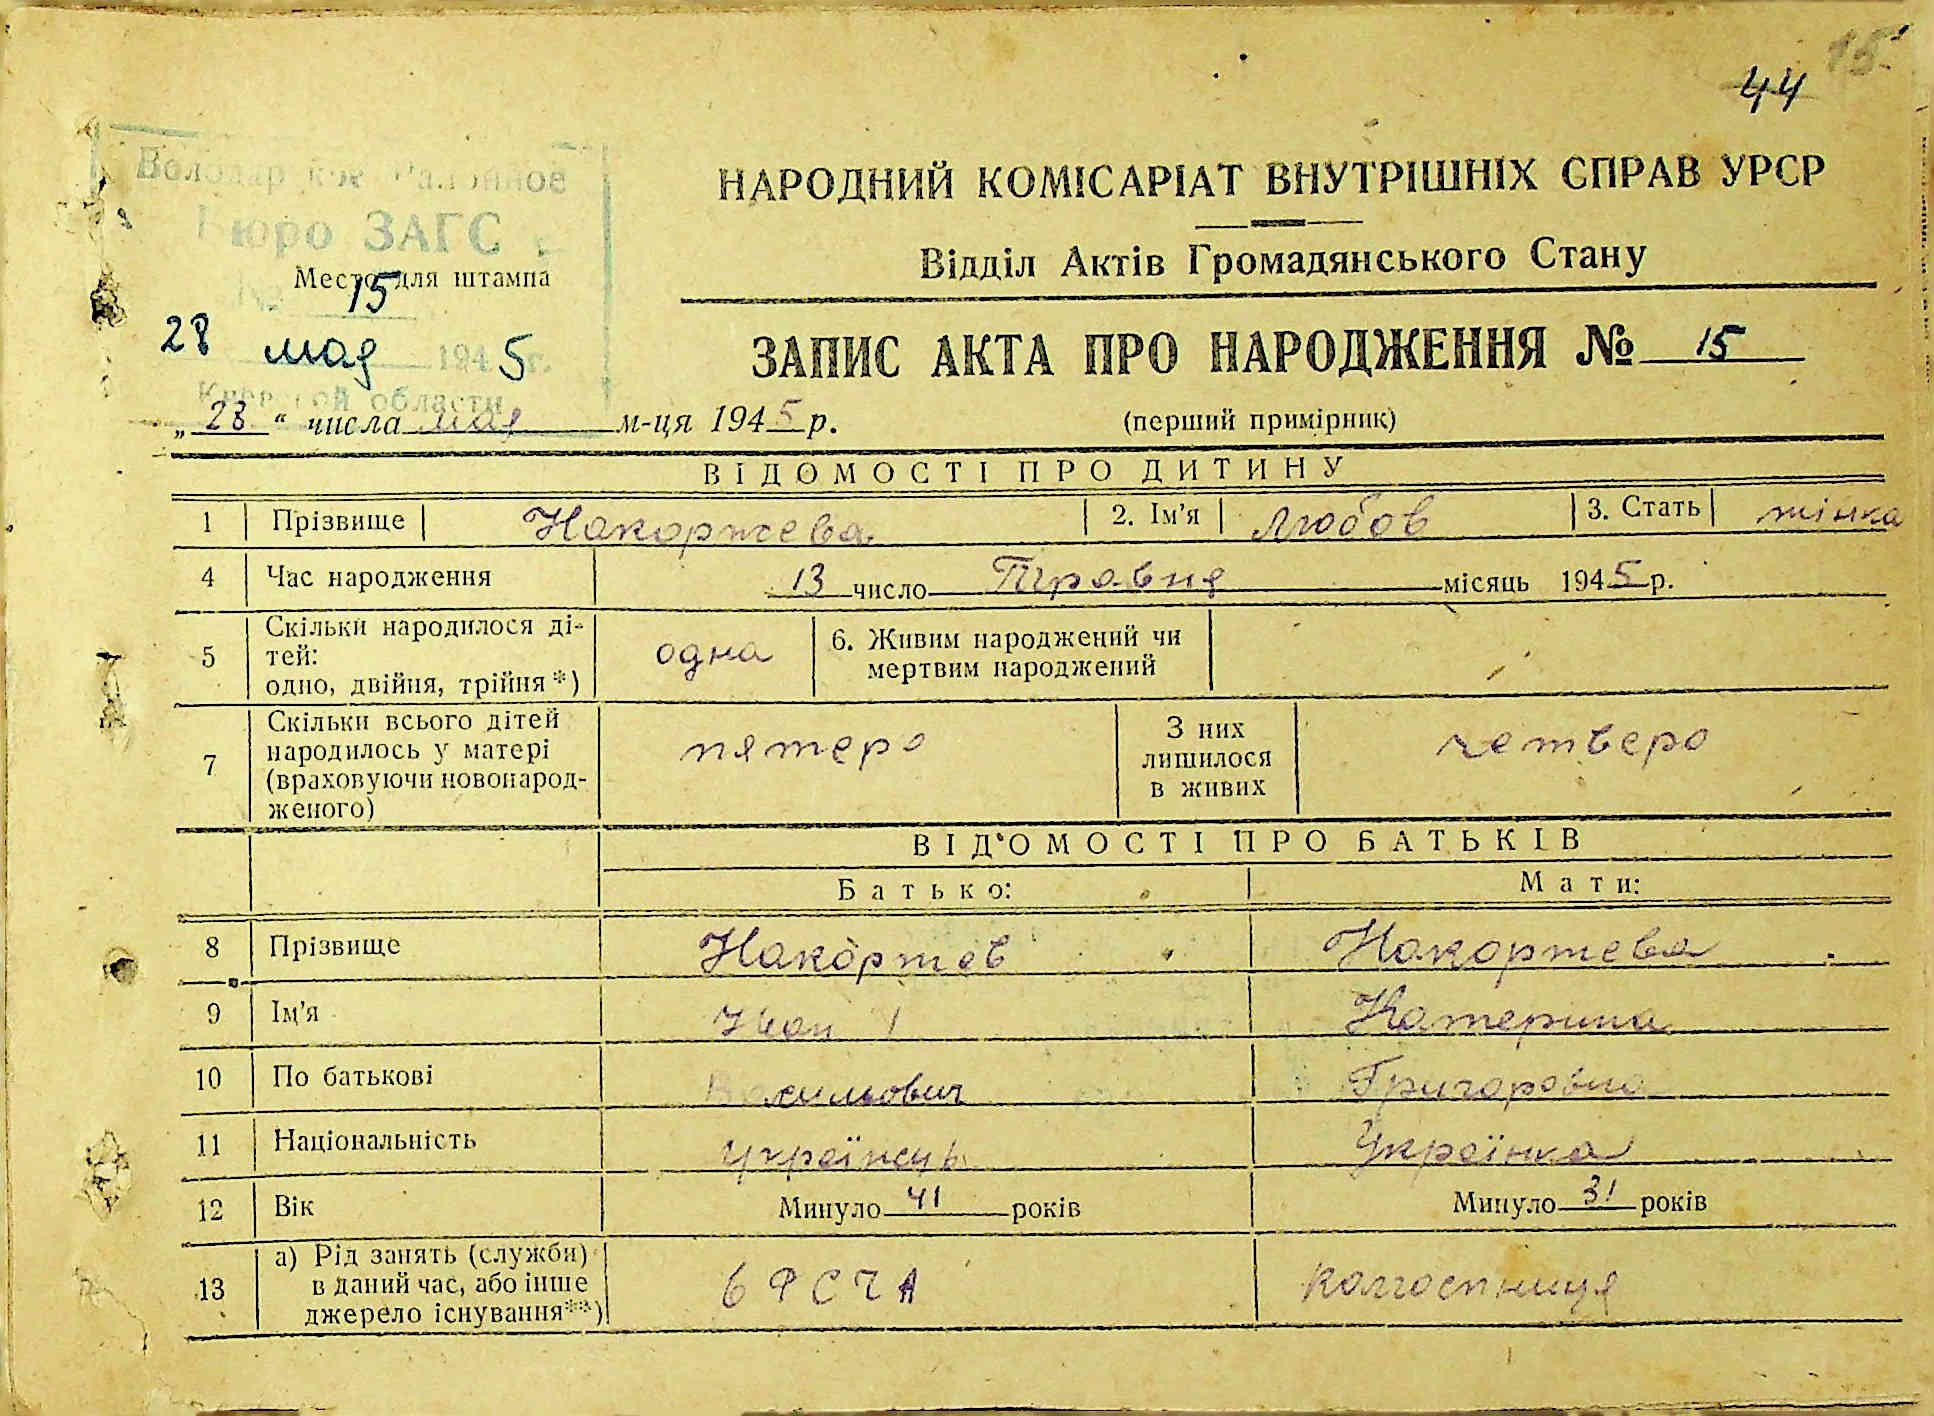 15
44
Бюро ЗАГС
Место для штампа
15
28 мая 1945 г.
области
НАРОДНИЙ КОМІСАРІАТ ВНУТРІШНІХ СПРАВ УРСР
Відділ Актів Громадянського Стану
ЗАПИС АКТА ПРО НАРОДЖЕННЯ № 15
„28“ числа мая м-ця 1945 р. (перший примірник)
ВІДОМОСТІ ПРО ДИТИНУ
1 Прізвище Накоржева 2. Ім'я Любов 3. Стать жінка
4 Час народження 13 число Травня місяць 1945 р.
5 Скільки народилося ді-
тей:
одно, двійня, трійня*) одна 6. Живим народжений чи
мертвим народжений
7 Скільки всього дітей
народилось у матері
(враховуючи новонарод-
женого) пятеро З них
лишилося
в живих четверо
ВІДОМОСТІ ПРО БАТЬКІВ
Батько: Мати:
8 Прізвище Накоржев Накоржева
9 Ім'я Іван Катерина
10 По батькові Васильович Григоровна
11 Національність Українець Українка
12 Вік Минуло 41 років Минуло 31 років
13 а) Рід занять (служби)
в даний час, або інше
джерело існування**) в РСЧА колгоспниця